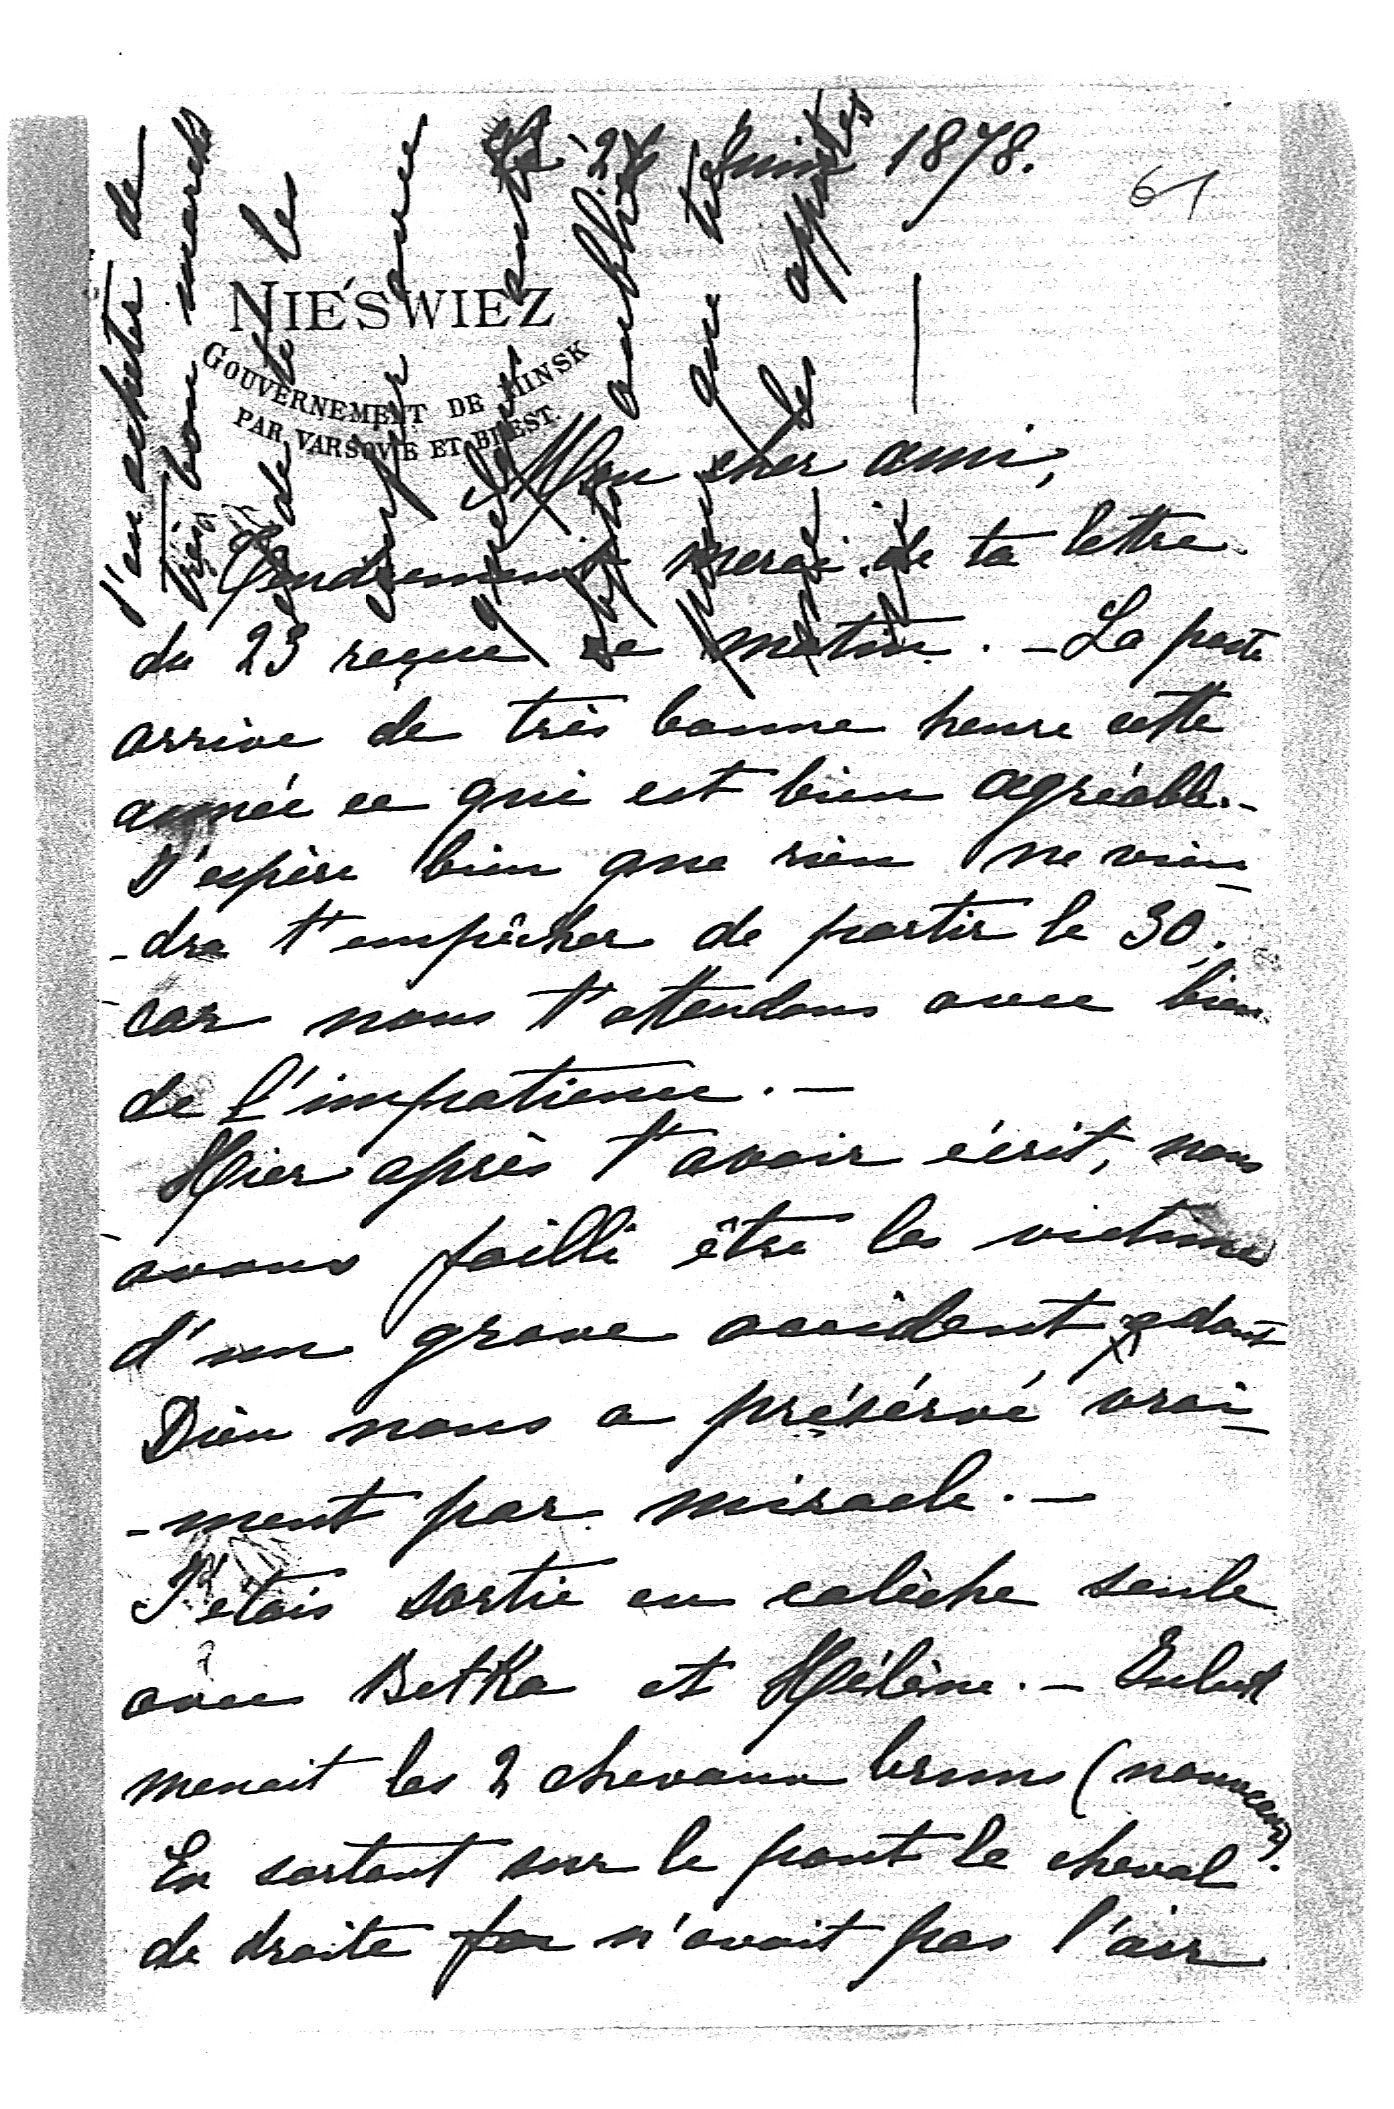 Le 2 Juin 1878.
61
NIEŚWIEZ
GOUVERNEMENT DE MINSK
PAR VARSOVIE ET BREST.
Mon cher ami,
Tendrement merci de ta lettre
du 23 reçue ce matin. - La poste
arrive de très bonne heure cette
année ce qui est bien agréable. -
J'espère bien que rien ne vien-
-dra t'empêcher de partir le 30,
car nous t'attendons avec bien
de l'impatience. -
Hier après t'avoir écrit, nous
avons failli être les victimes
d'un grave accident dont
Dieu nous a présérvé vrai-
-ment par miracle. -
J'étais sortie en calèche seule
avec Betka et Hélène. -
menait les 2 chevaux bruns (nouveaux).
En sortant sur le pont le cheval
de droite n'avait pas l'air
j'en acheter de
très bon marché
de le
avec
oublié
que tu
le apportes